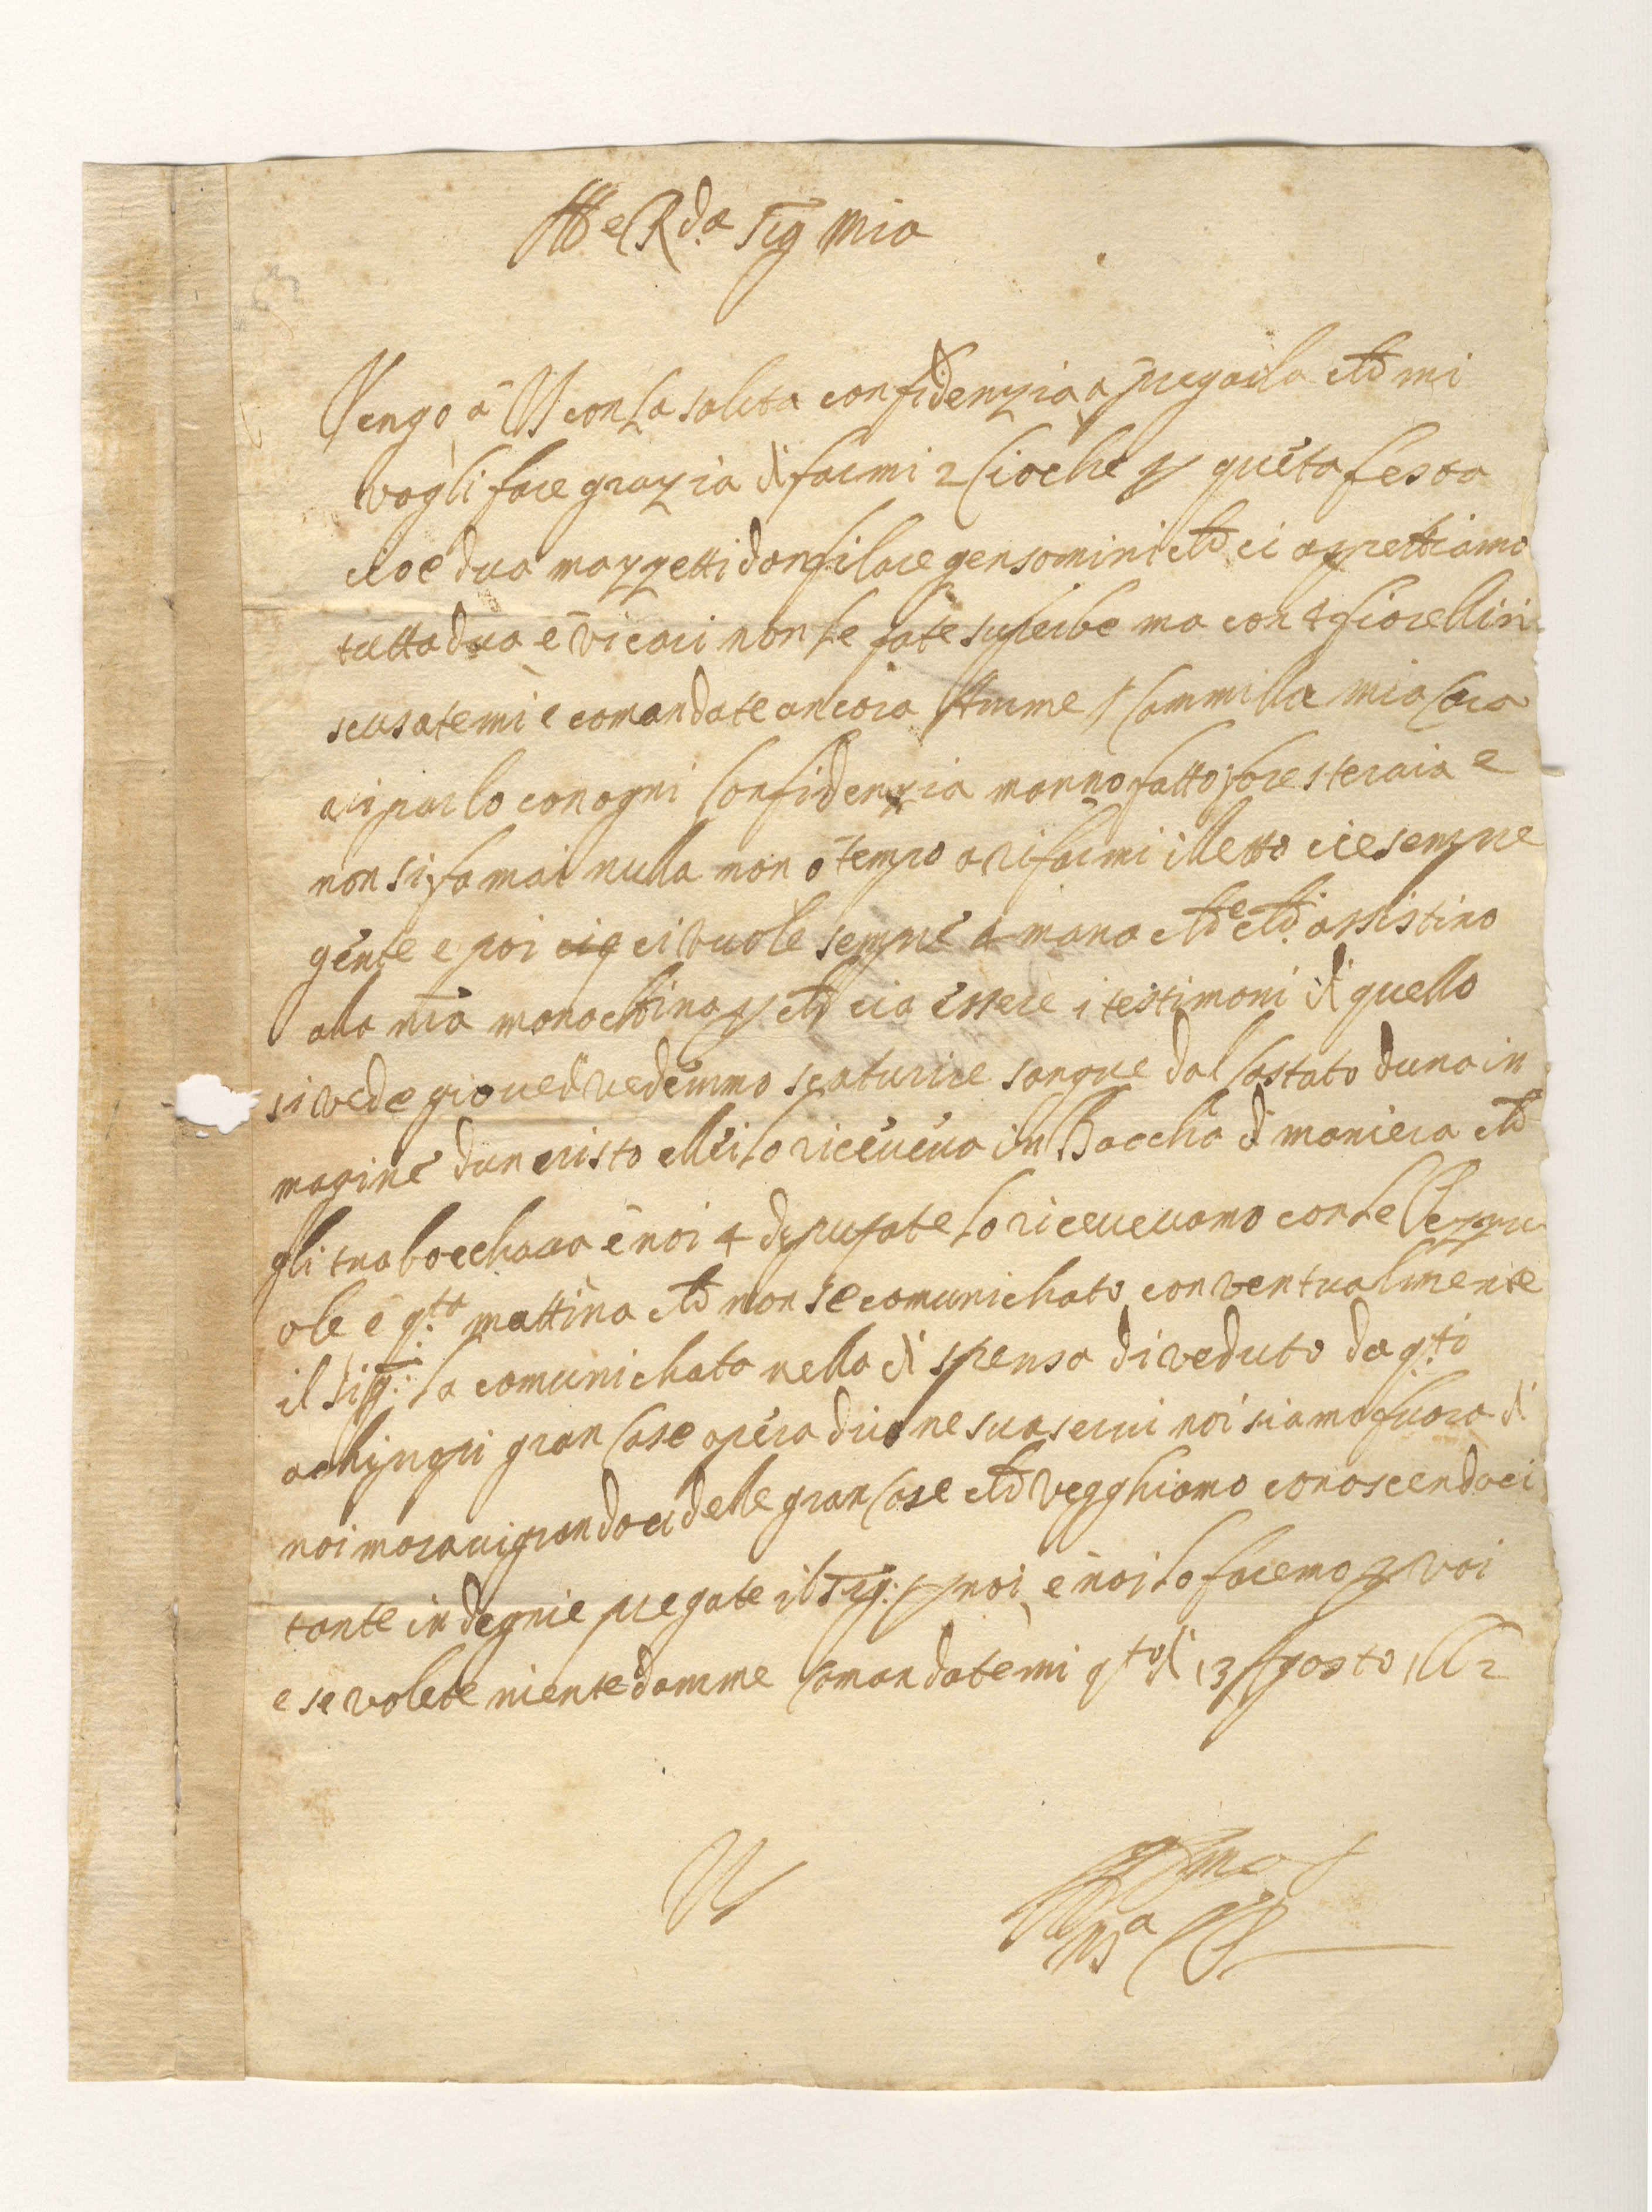 M e Rda Sig Mia
Vengo a VS con la solita confidenzia a pregarla che mi
vogli fare grazia di farmi 2 Cioche p questa festa
cioe dua mazzetti donfilare gensomini che ci aspettiamo
tutta dua e vicari non le fate superbe ma con 4 fiorellini
scusatemi e comandate ancora Amme S Cammilla mia Cara
vi parlo con ogni Confidenzia manno fatto foresteraia e
non si fa mai nulla non o tempo a rifarmi illetto cie sempre
gente e poi cie ci vuole sempre a mana che che assistino
alla nra monachina p che cia essere i testimoni di quello
si vede giovedi vedemmo scaturire sangue dal Costato duna in
magine dun cristo ellei lo riceveva in Boccha di maniera che
gli trabocchava e noi 4 deputate lo ricevevamo con le Pezzu
ole e qta mattina che non se comunichato conventualmente
il Sig: la comunichata nella dispensa di veduto da qti
gran Cose opera dio ne sua servi noi siamo fuora di
noi maravigrandoci delle gran Cose che vegghiamo conoscendoci
tante indegnie pregate il Sig: p noi e noi lo faremo p voi
e se volete niente damme Comandatemi qto di 13 Agosto 1662
VS